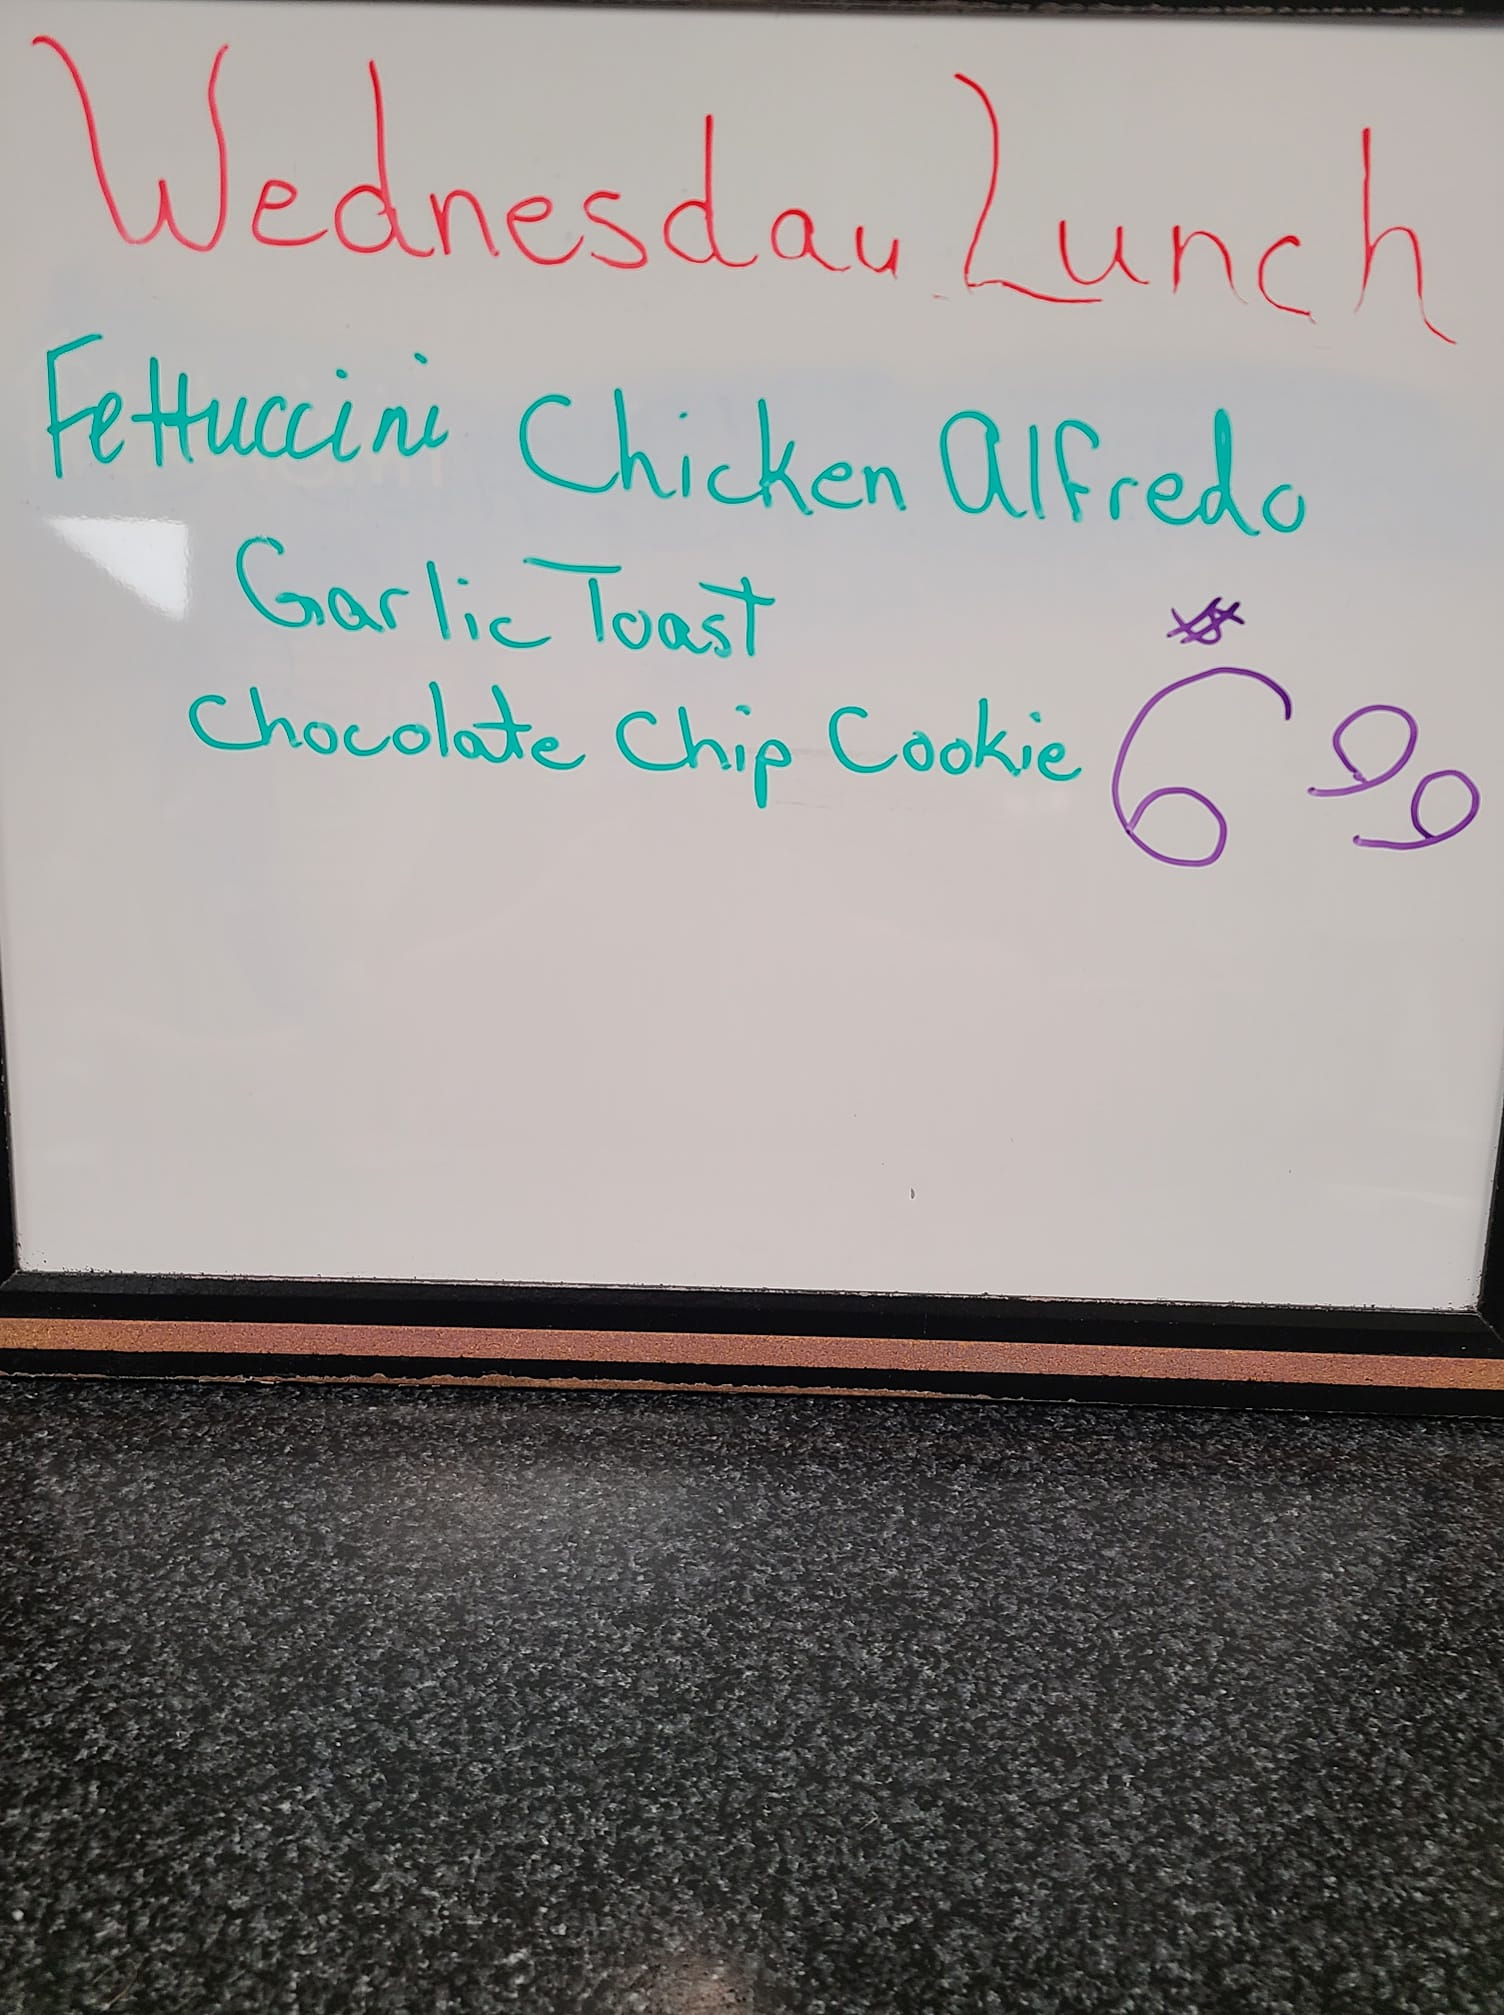 Wednesday Lunch
Fettuccini Chicken Alfredo
Garlic Toast
Chocolate Chip Cookie $6 99